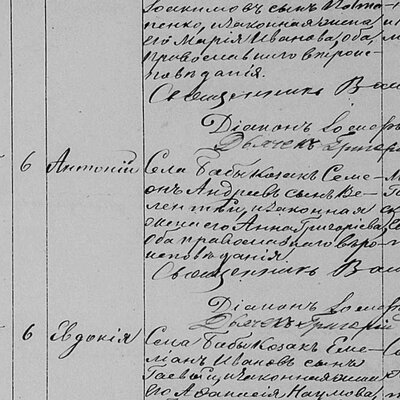 Іоакимовъ сынъ
пенко, и законная жена
его Марія Иванова, оба
православнаго вѣроис-
повѣданія.
Священникъ
Діаконъ Іосифъ
Дьячекъ Григорій
6 Антоній Села Бабы козакъ Семе-
онъ Андреевъ сынъ
и законная
жена его Анна Григоріева
оба православнаго вѣро-
исповѣданія
Священникъ
Діаконъ Іосифъ
Дьячекъ Григорій
6 Евдокія Села Бабы козакъ Еме-
ліанъ Ивановъ сынъ
и законная жена
его Афанасія Наумова,